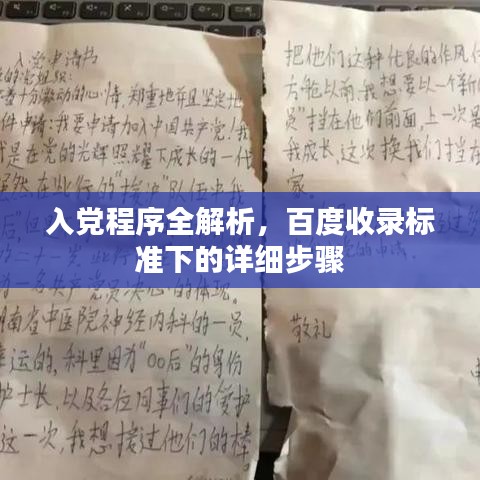 入党申请书
的党组织：
着十分激动的心情，郑重地并且坚定地
件申请：我要申请加入中国共产党！我
是在党的光辉照耀下成长的一代
入党程序全解析，百度收录标
准下的详细步骤
一名共产党员决心的体现。
南省中医院神经内科的一员，
幸运的，科里因为"00后"的身份
护士长，以及各位同事们的爱护
这一次，我想接过他们的棒
把他们这种优良的作风
方舱以前，我想要以一个新的
员"挡在他们前面，上一次是
我成长，这次换我们挡在
家。
敬礼